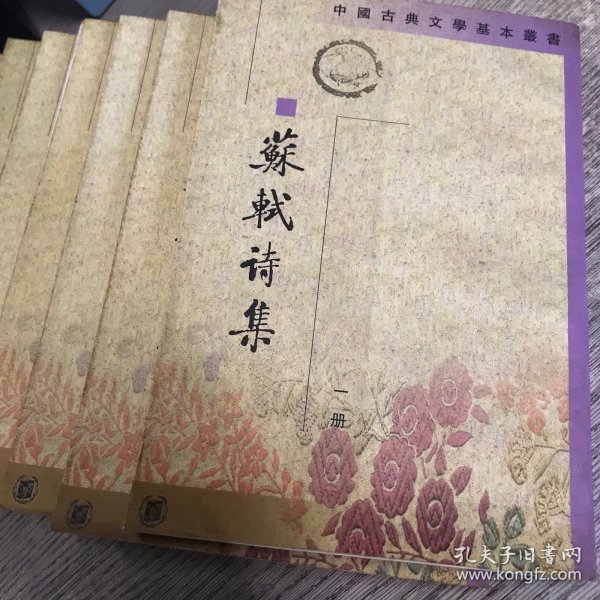 中國古典文學基本叢書
蘇軾诗集
一册
孔夫子旧書网
www.kongfz.com